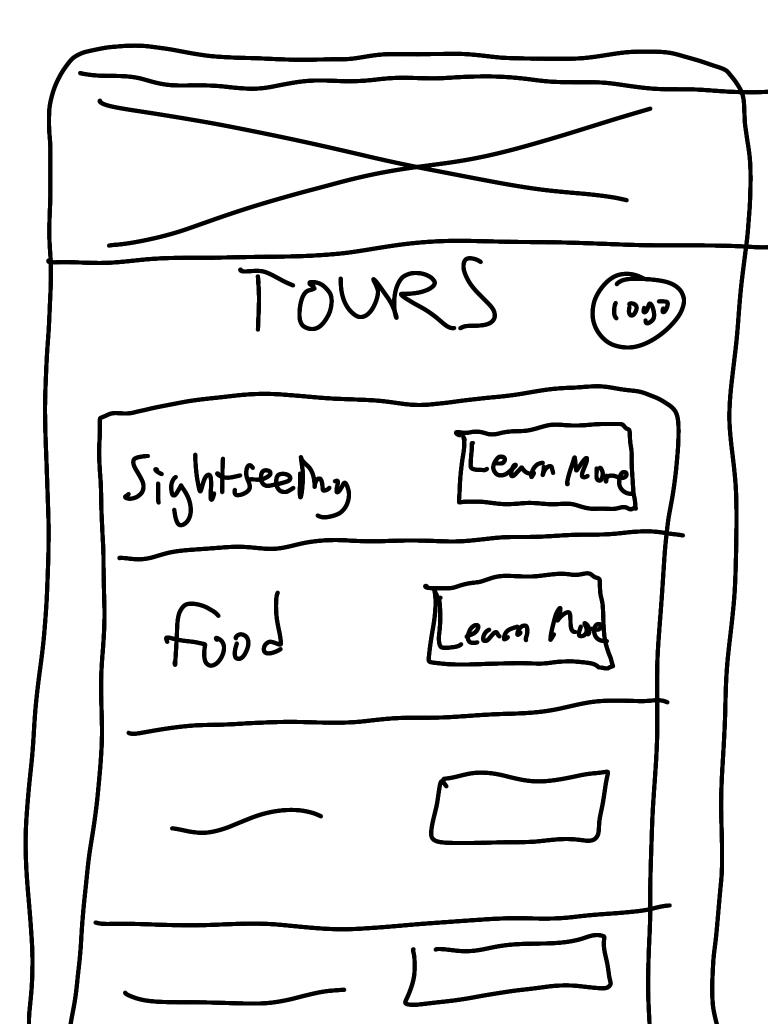 TOURS
logo
Sightseeing
Learn More
Food
Learn More